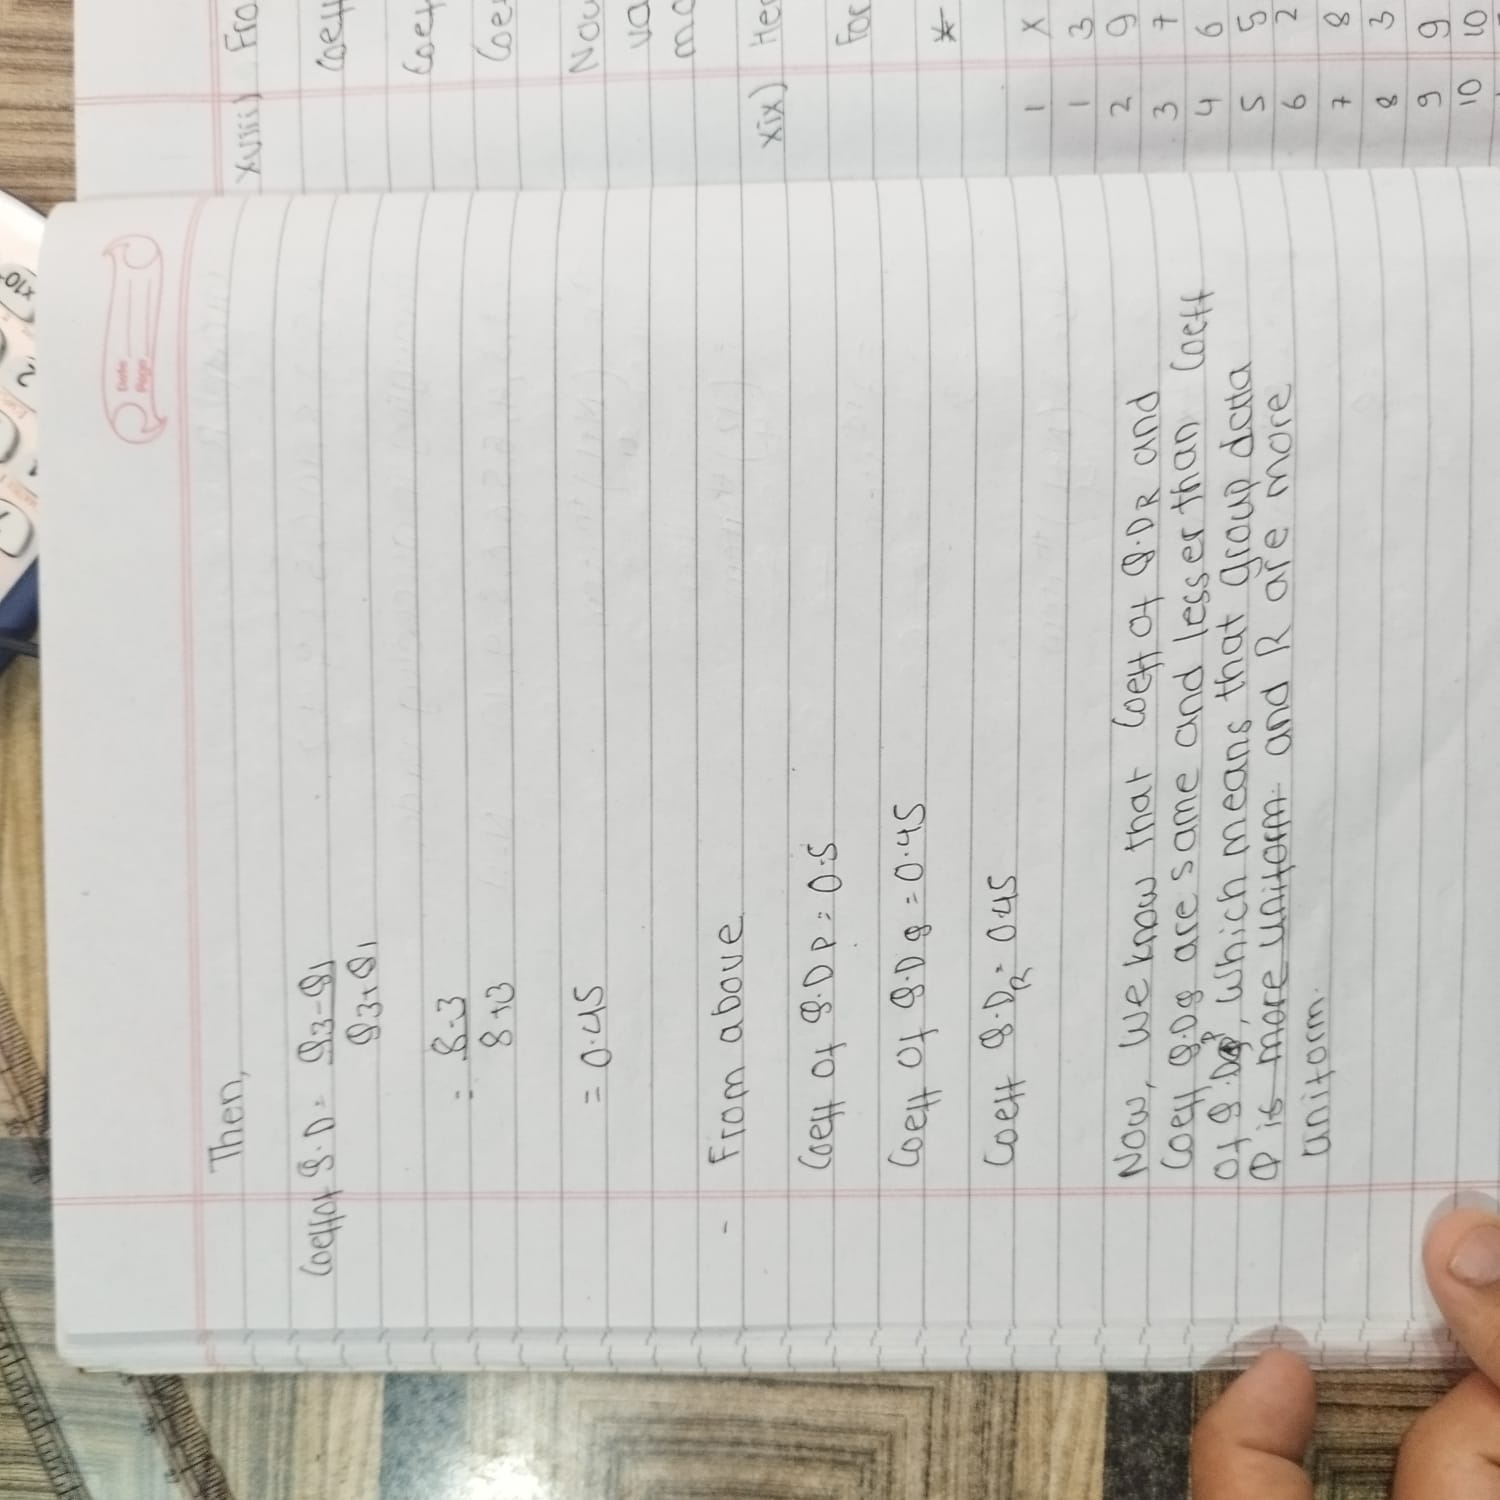 Date
Page
Then,
Coeff of Q.D = Q3-Q1
Q3+Q1
= 8-3
8+3
= 0.45
- From above
Coeff Of Q.D P = 0.5
Coeff Of Q.D Q = 0.45
Coeff Q.DR = 0.45
Now, We know that Coeff Of Q.DR and
Coeff Q.DQ are same and lesser than Coeff
Of Q.DP, Which means that group data
Q is more uniform and R are more
uniform.
xviii) Fro
Coeff
Coef
Coe
Now
va
mo
xix) Her
For
*
1 X
1 3
2 9
3 7
4 6
5 5
6 2
7 8
8 3
9 9
10 10
1 2
x10